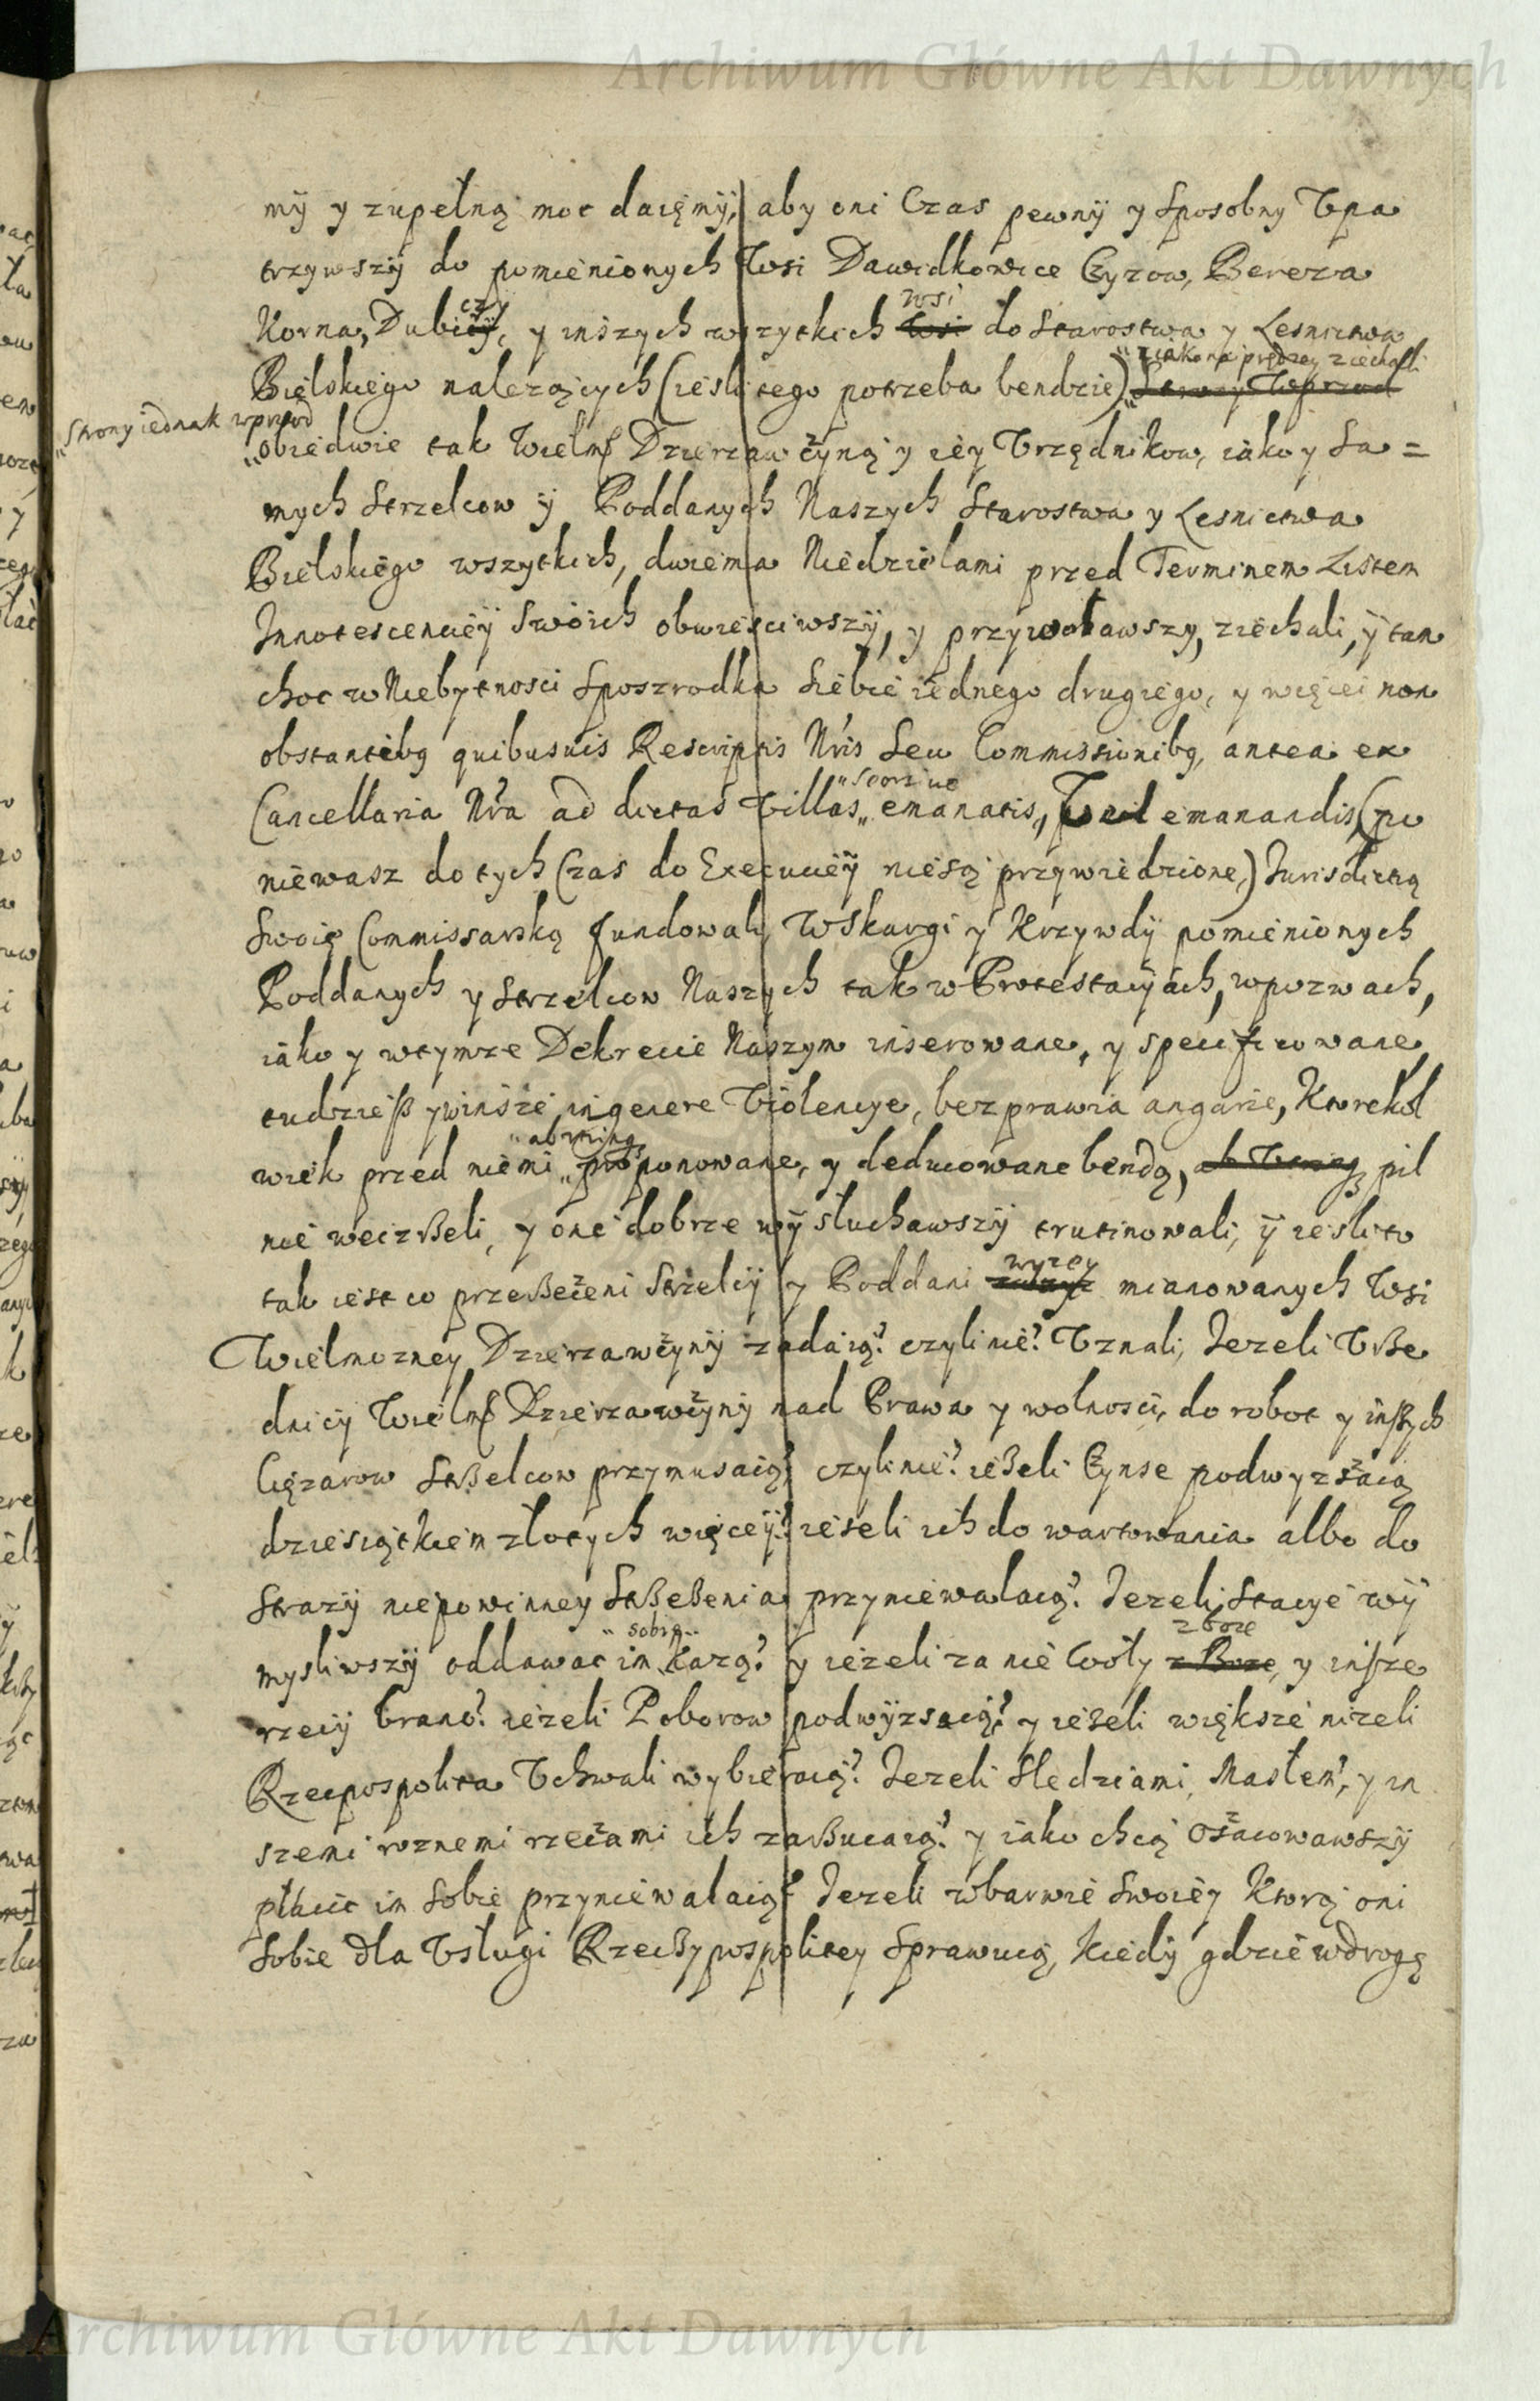 Archiwum Główne Akt Dawnych
mÿ y zupełną moc daięmÿ, aby oni Czas pewnÿ y sposobny Vpa
trzywszÿ do pomienionych Wsi Dawidkowice Czyzow, Bereza
czy wsi
Korna, Dubicÿ, y inszych wszytkich Wsi do Starostwa y Lesnictwa
iako naprędzey ziechali
Bielskiego nalezących (iesli tego potrzeba bendzie) Strony Wprzod
Strony iednak wprzod
obiedwie tak Wielmß Dzierzawczyną y iey Vrzędnikow, iako y Sa=
mych Strzelcow ÿ Poddanych Naszych Starostwa y Lesnictwa
Bielskiego wszytkich, dwiema Niedzielami przed Terminem Listem
Innotescenciey Swoich obwiesciwszÿ, y przywoławszy, ziechali, ÿ tam
choc w Niebytnosci sposzrodka siebie iednego drugiego, y więcei non
obstantibq quibusuis Rescriptis Nris seu Commissionibq, antea ex
seorsiue
Cancellaria Nra ad dictas Villas emanatis, Vel emanandis, (po
niewasz do tych Czas do Execucieÿ niesą przywiedzione,) Iurisdictią
Swoię Commissarską fundowali, W Skargi y Krzywdÿ pomienionych
Poddanych y Strzelcow Naszych tak w Protestacÿach, w pozwach,
iako y w tymze Dekrecie Naszym inserowane, y specificowane,
tudzieß y winsze in genere Violencye, bezprawia angarie, Ktorekol
ab utrinq
wiek przed niemi proponowane, y deducowane bendą, ab Vtrinq pil
nie weizßeli, y one dobrze wÿsłuchawszÿ trutinowali, ÿ iesli to
wyzey
tak iest co przeßeczeni Strzelcÿ y Poddani mianowanych Wsi
Wielmozney Dzierzawczynÿ zadaią? czyli nie? Vznali, Iezeli Vße
dnicÿ Wielmß Dzierzawczynÿ nad Prawa y wolnosci, do robot y inßych
Cięzarow Stßelcow przymusaią? czyli nie? ießeli Czynse podwyzsaią
dziesiątkiem złotych więceÿ? iezeli ich do wartowania albo do
Strazÿ niepowinney Stßeßenia przyniewalaią? Iezeli Stacye wÿ
sobie zboze
mysliwszÿ oddawac im Kazą? y iezeli za nie Woły zBoze, y insze
rzecÿ brano? iezeli Poborow podwÿzsaią? y iezeli większe nizeli
Rzecpospolita Vchwali wybieraią? Iezeli sledziami, Masłem, y in
szemi roznemi rzeczami ich zaßucaią? y iako chcą oszacowawszÿ
płacic im sobie przyniewalaią? Iezeli w barwie swoiey Ktorą oni
sobie dla Vsługi Rzeczypospolitey Sprawuią, Kiedÿ gdzie w drogę
Archiwum Główne Akt Dawnych